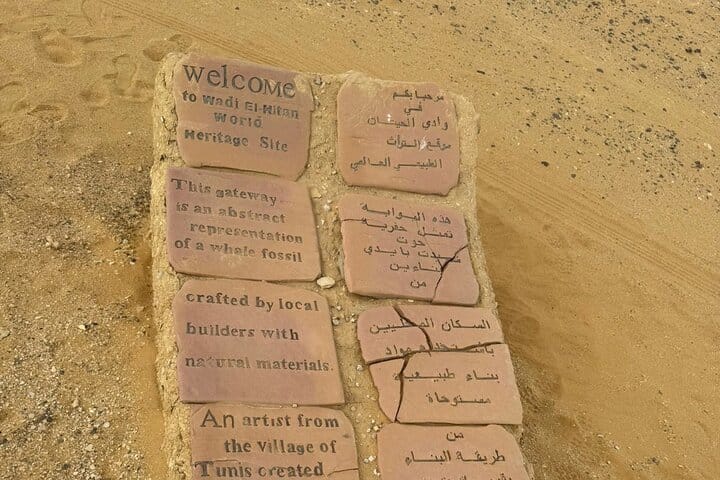 Welcome
to Wadi El-Hitan
World
Heritage Site
This gateway
is an abstract
representation
of a whale fossil
crafted by local
builders with
natural materials.
An artist from
the village of
Tunis created
مرحبا بكم
في
وادي الحيتان
موقع التراث
الطبيعي العالمي
هذه البوابة
تمثل حفرية
حوت
شيدت بأيدي
بنائين
من
السكان المحليين
باستخدام مواد
بناء طبيعية
مستوحاة
من
طريقة البناء